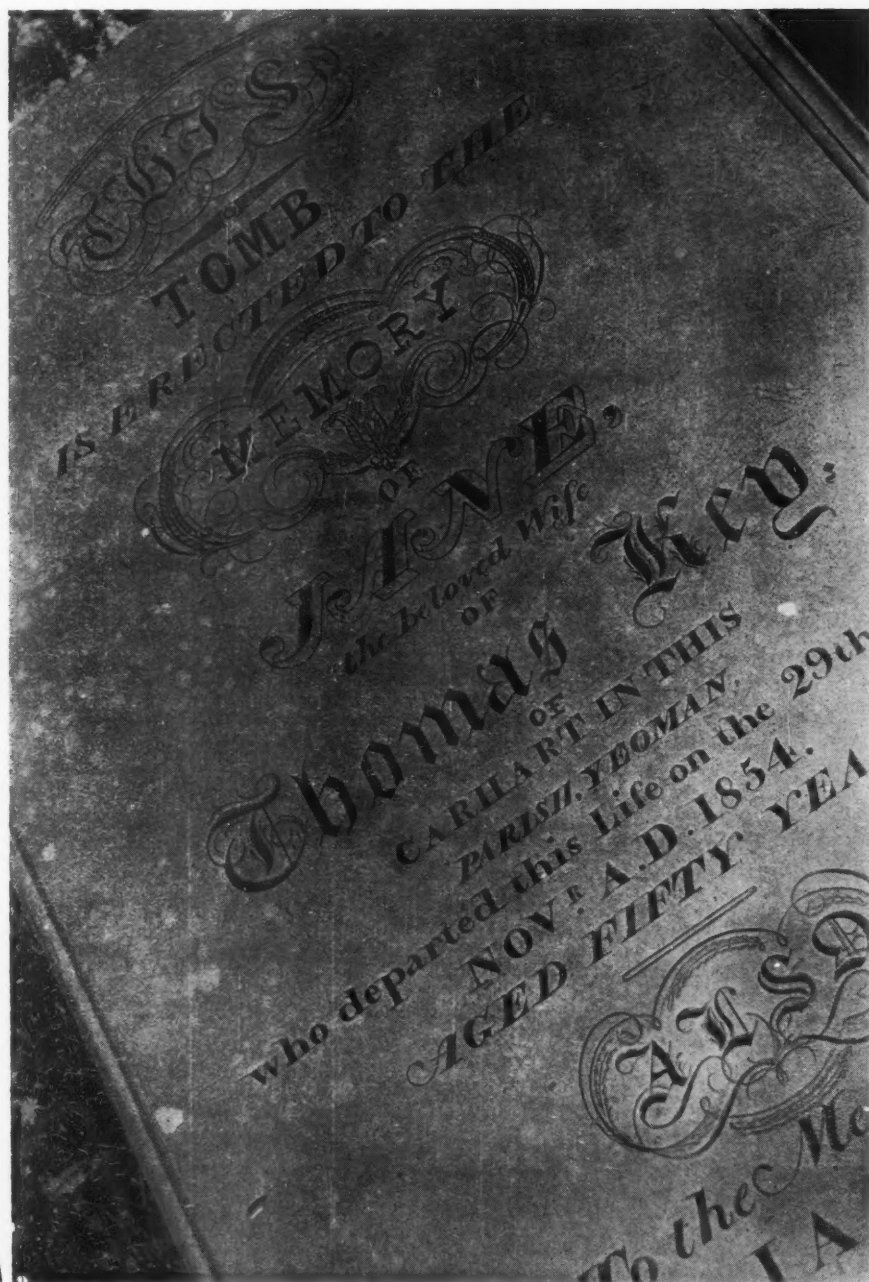 THIS
TOMB
IS ERECTED TO THE
MEMORY
OF
JANE,
the beloved Wife
OF
Thomas Key,
OF
CARHART IN THIS
PARISH, YEOMAN,
who departed this Life on the 29th
NOVR. A.D. 1854.
AGED FIFTY YEA
ALSO
To the Me
JA